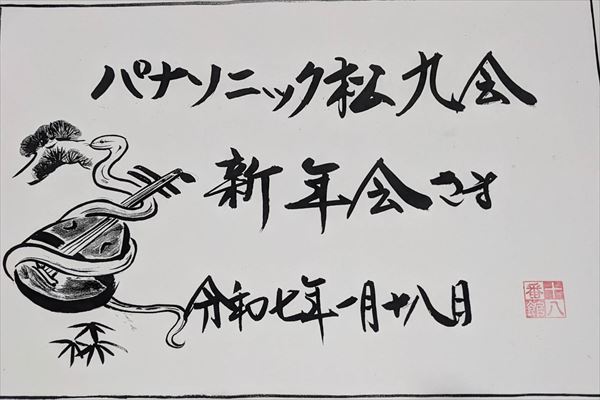 パナソニック松九会
新年会さま
令和七年一月十八日
十八番館